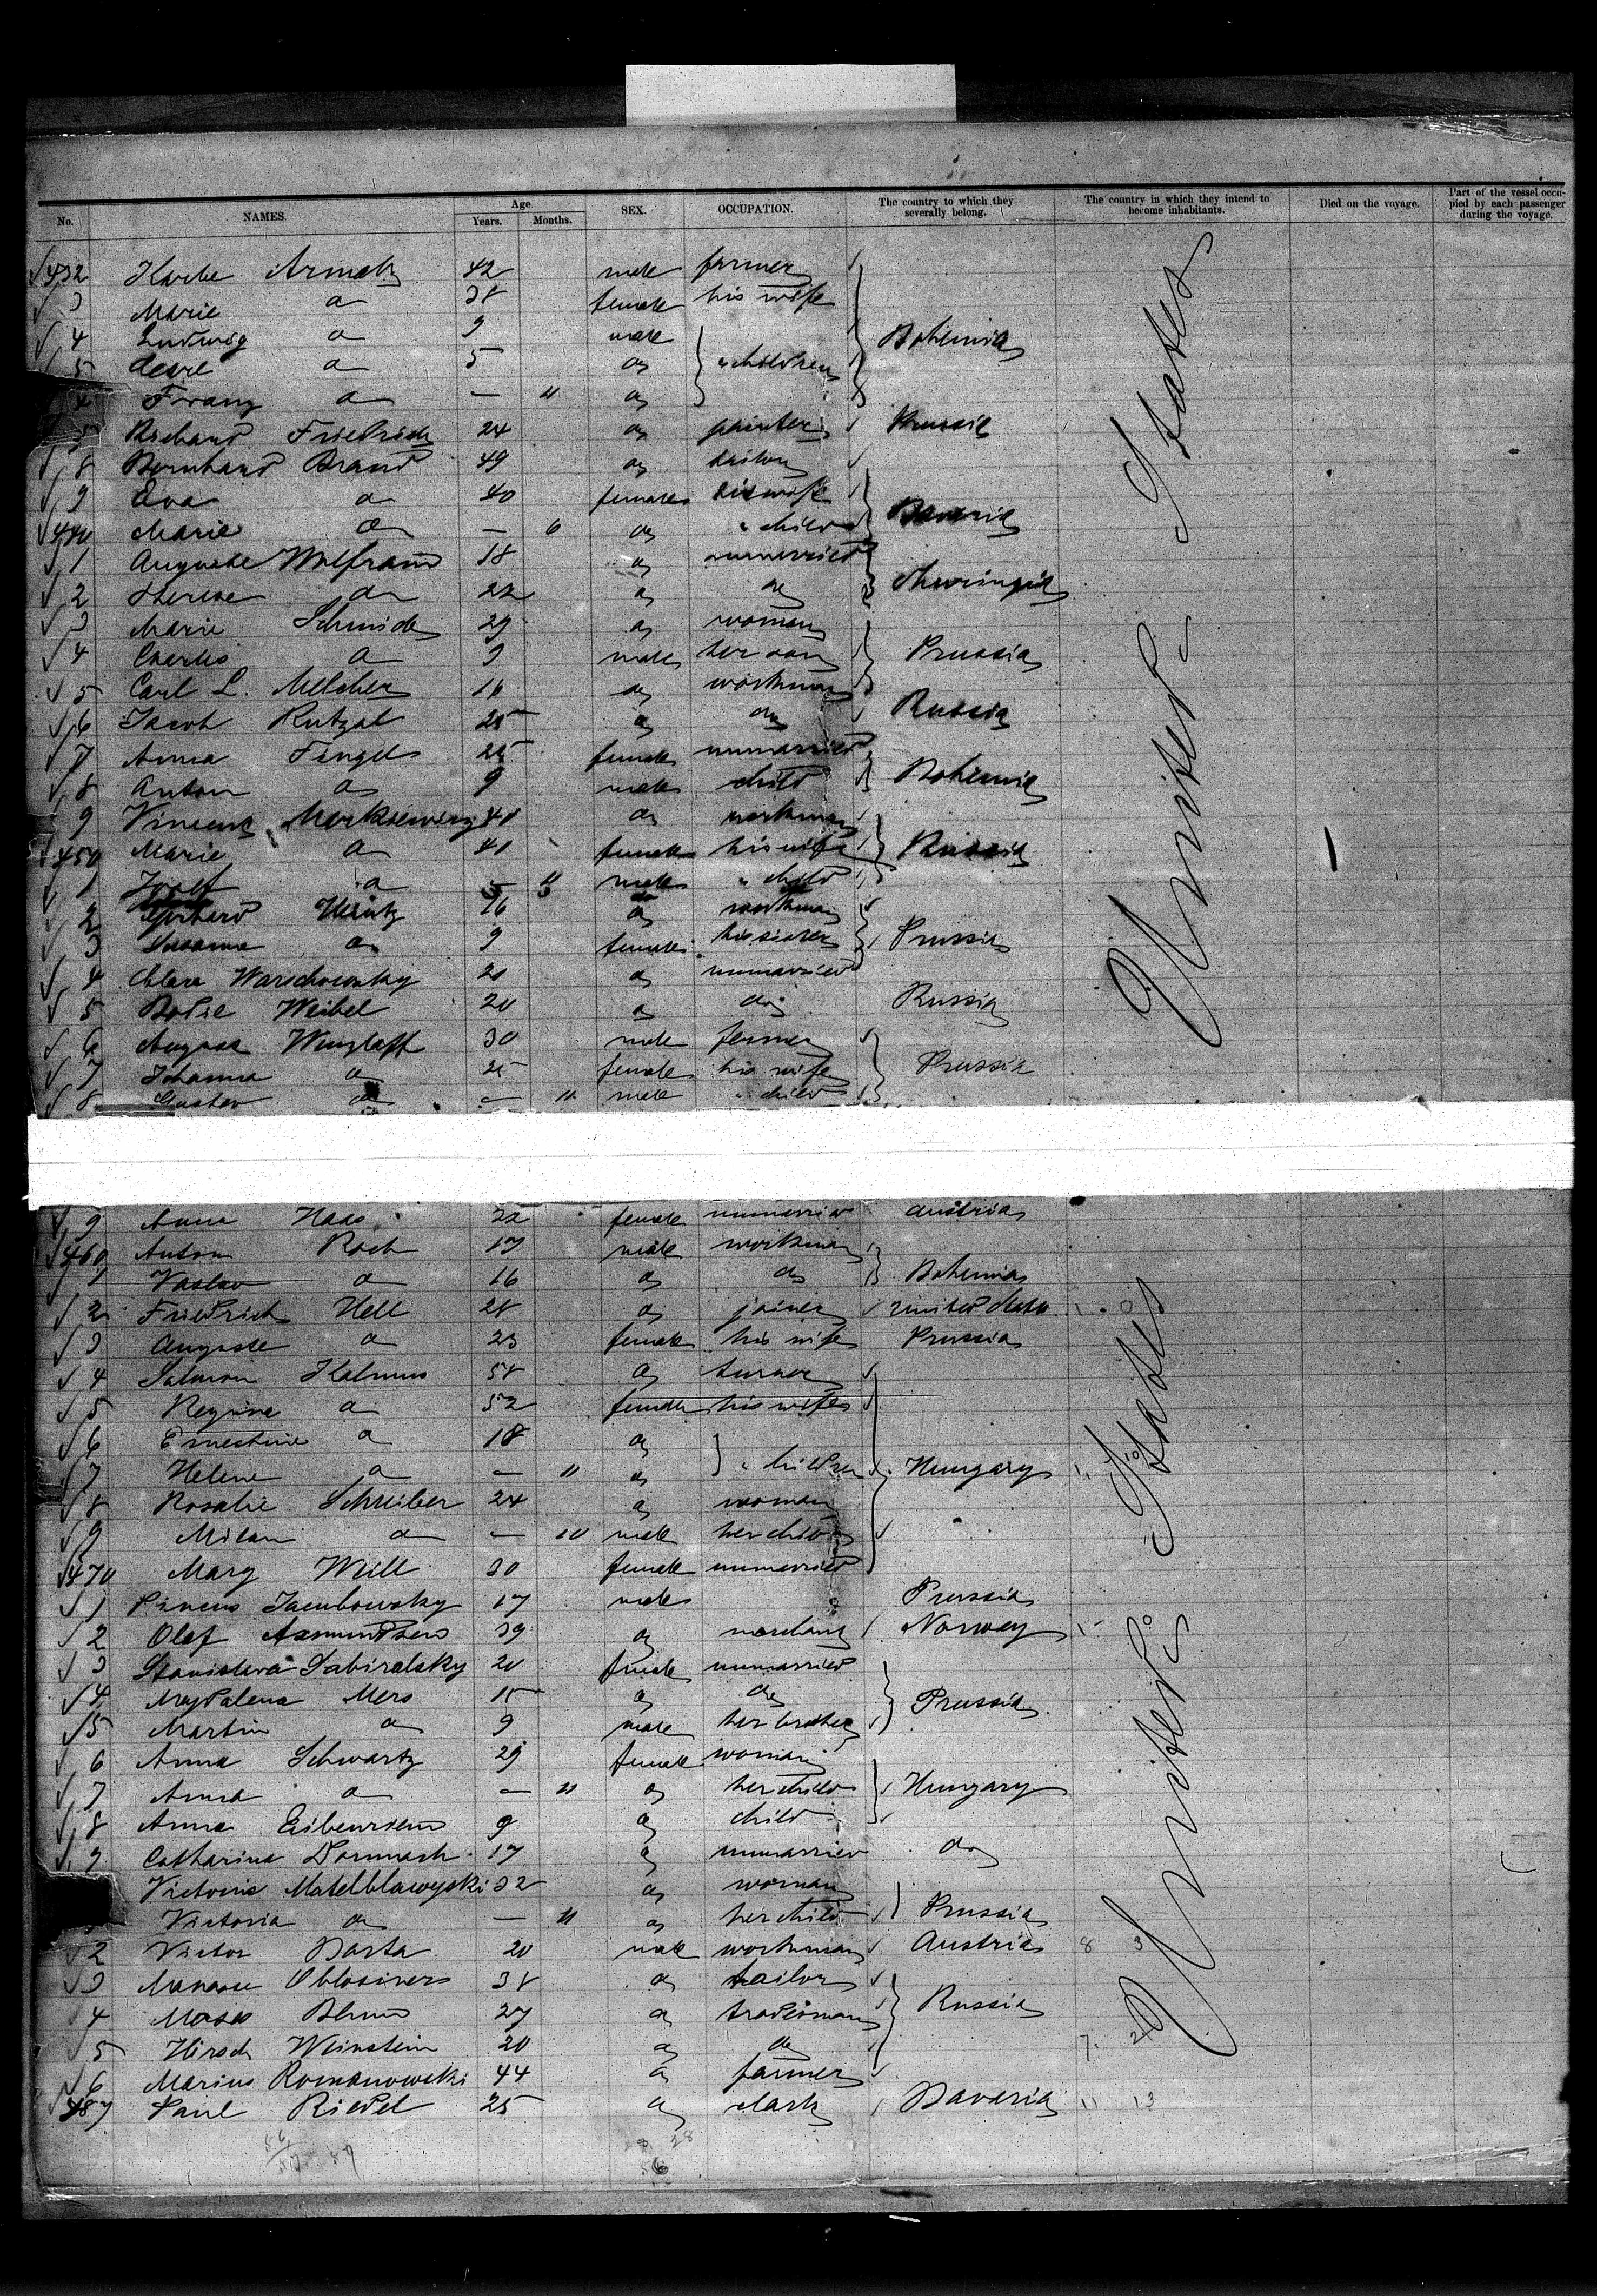 No. NAMES. Age Years. Months. SEX. OCCUPATION. The country to which they severally belong. The country in which they intend to become inhabitants. Died on the voyage. Part of the vessel occupied by each passenger during the voyage.
432 42 male farmer
3 Marie a 38 female his wife
4 Ludwig a 9 male
5 a 5 do " children Bohemia
Franz a — 11 do
Richard Friedrich 24 do painter Prussia
8 Bernhard Brand 49 do tailor
9 Eva a 40 female his wife Bavaria
440 Marie a — 6 do " child
1 Auguste Wolfram 18 do unmarried
2 Therese a 22 do do Thuringia
3 Marie Schmidt 29 do woman
4 Charles a 9 male her son Prussia
5 Carl L. Melcher 16 do workman
6 Jacob Rutzat 25 do do Russia
7 Anna Fengel 25 female unmarried
8 Anton a 9 male child Bohemia
9 Vincenz Morkiewicz do workman
450 Marie a 41 female his wife Russia
1 Josef a — 11 male " child
2 Gerhard 16 do workman
3 Susanna a 9 female his sister Prussia
4 Clara Warschowsky 20 do unmarried
5 Weibel 20 do do Russia
6 August Wenzlaff 30 male farmer
7 Johanna a 25 female his wife Prussia
8 Gustav a — 11 male " child
9 Anna Haas 22 female unmarried Austria
460 Anton Roch 17 male workman
1 Vaslav a 16 do do Bohemia
2 Friedrich Hell 28 do joiner United States
3 Auguste a 23 female his wife Prussia
4 Salmon Kalmus 58 do turner
5 Regina a 52 female his wife
6 Ernestine a 18 do
7 Helene a — 11 do " children Hungary
8 Rosalie Schreiber 24 do woman
9 Milan a — 10 male her child
470 Mary Weill 30 female unmarried
1 Pincus Jacubowsky 17 male Prussia
2 Olaf Asmundsen 39 do merchant Norway
3 Stanislava Sabiralsky 20 female unmarried
4 Magdalena Mers 15 do do Prussia
5 Martin a 9 male her brother
6 Anna Schwartz 29 female woman
7 Anna a — 11 do her child Hungary
8 Anna 9 do child
9 Catharina 17 do unmarried do
Victoria 32 do woman
Victoria a — 11 do her child Prussia
2 Victor Barta 20 male workman Austria 8 3
3 38 do tailor
4 Moses Blum 27 do tradesman Russia
5 Hirsch Weinstein 20 do do
6 Marius Romanowski 44 do farmer
487 Paul Riedel 25 do clark Bavaria 11 13
United States
United States